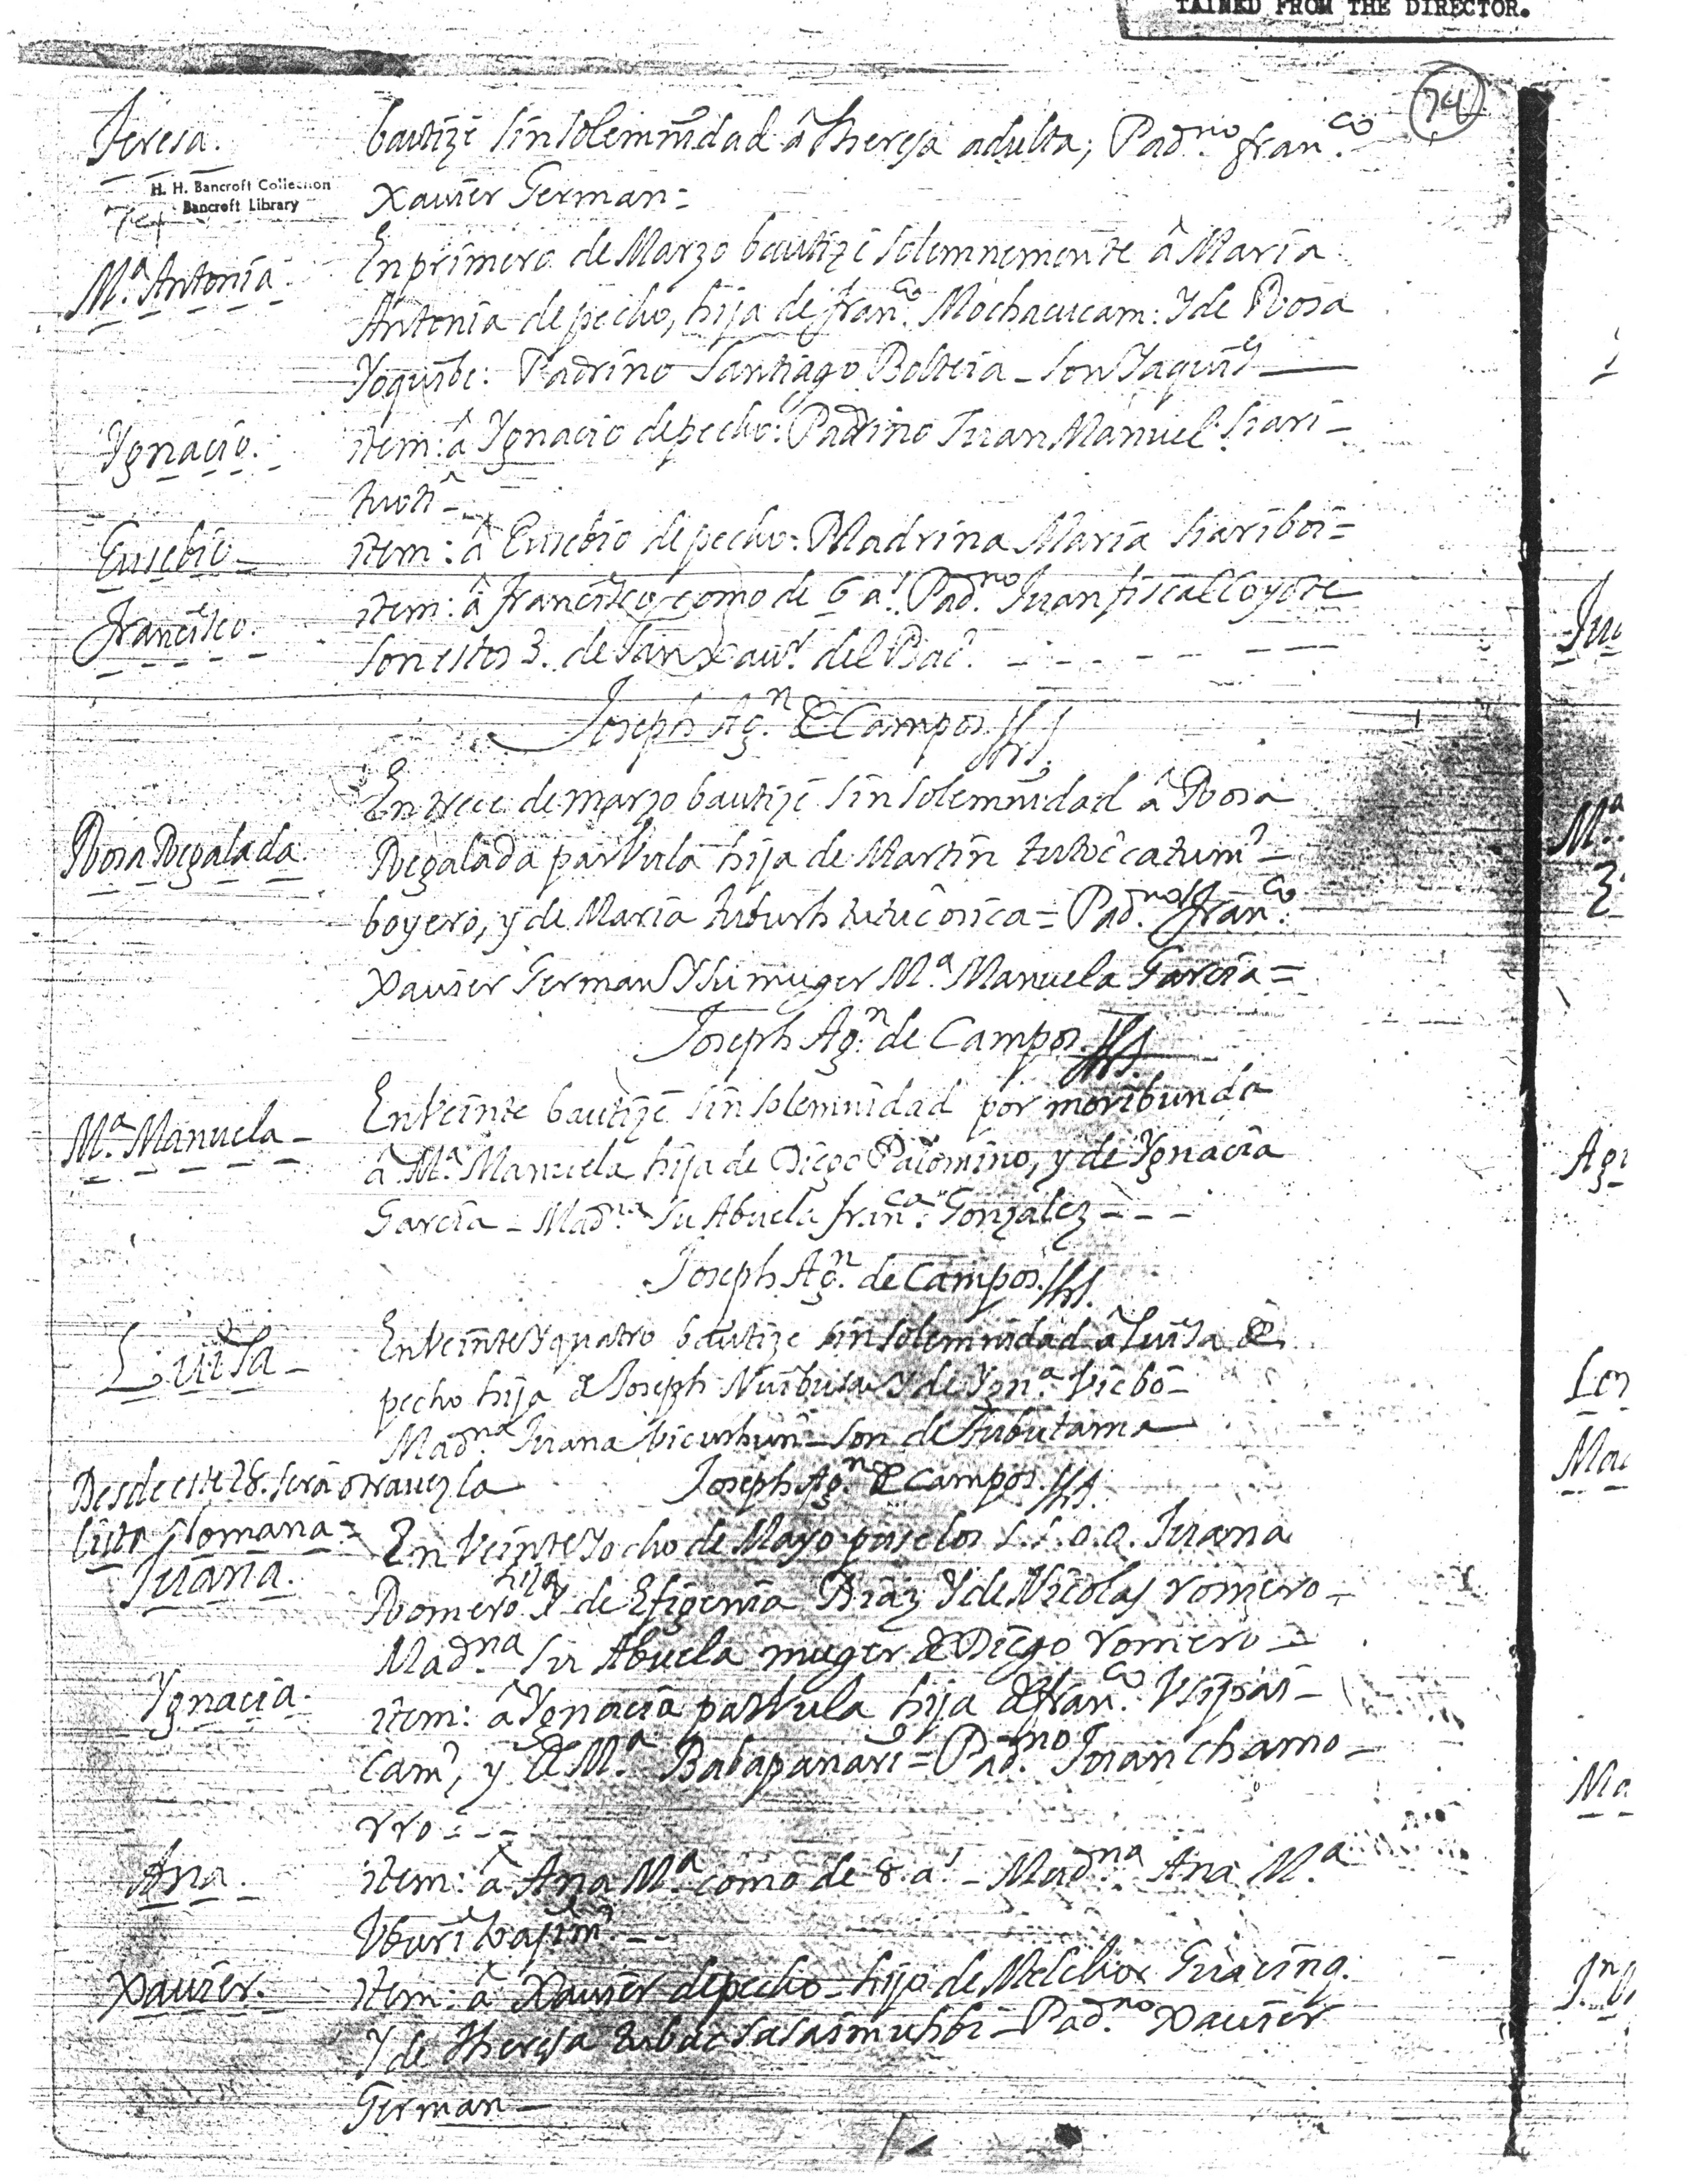 TAINED FROM THE DIRECTOR.
74
Teresa.
bautizè sin solemnidad â Theresa adulta; Pad.no fran.co
H. H. Bancroft Collection
Bancroft Library
Xavier German=
74
M.a Antonia.
En primero de Marzo bautizè solemnemente â Maria
Antonia de pecho, hija de fran.co Mochacucam: Y de Rosa
Yoquibe: Padrino Santiago Bolteia - son Yaquis
Ygnacio.
item: â Ygnacio de pecho: Padrino Juan Manuel Siari-
tuoti -
Eusebio
item: â Eusebio de pecho: Madrina Maria Siariboi=
Francisco.
item: â Francisco como de 6 a.s Pad.no Juan fiscal Coyote
son estos 3. de San Xav.r del Bac.
Joseph Ag.n de Campos. JHS.
En trece de marzo bautizè sin solemnidad â Rosa
Rosa Regalada.
Regalada parvula hija de Martin tutuccatum?-
boyero, y de Maria tuburh tutucosica = Pad.nos fran.co
Xavier German Y su muger M.a Manuela Garcia =
Joseph Ag.n de Campos. JHS.
M.a Manuela-
En veinte bautizè sin solemnidad por moribunda
â M.a Manuela hija de Diego Palomino, y de Ygnacia
Garcia - Mad.na su Abuela fran.ca Gonzalez - - -
Joseph Ag.n de Campos. JHS.
Luisa-
En veinte Y quatro bautize sin solemnidad â Luisa de
pecho hija de Joseph Nuibuisa Y de Ygn.a Vicbo-
Mad.na Juana bicushun - son de Tubutama
Desde este 28. serâ otra vez la
Joseph Ag.n de Campos. JHS.
lista Romana=
En veinte Y ocho de Mayo puse los S.S. O.O. Juana
Juana.
hija
Romero Y de Efigenia Diaz Y de Nicolas romero-
Mad.na su Abuela muger de Diego romero -
Ygnacia.
item: â Ygnacia parvula hija de fran.co Usipiai-
cam?, y de M.a Babapanari = Pad.no Juan chamo-
rro - - -
Ana.
item: â Ana M.a como de 8. a.s - Mad.na Ana M.a
Vburi
Xavier.
item: â Xavier de pecho - hijo de Melchor Guacing.
Y de Theresa tubac sasaimuhbi - Pad.no Xavier
German -